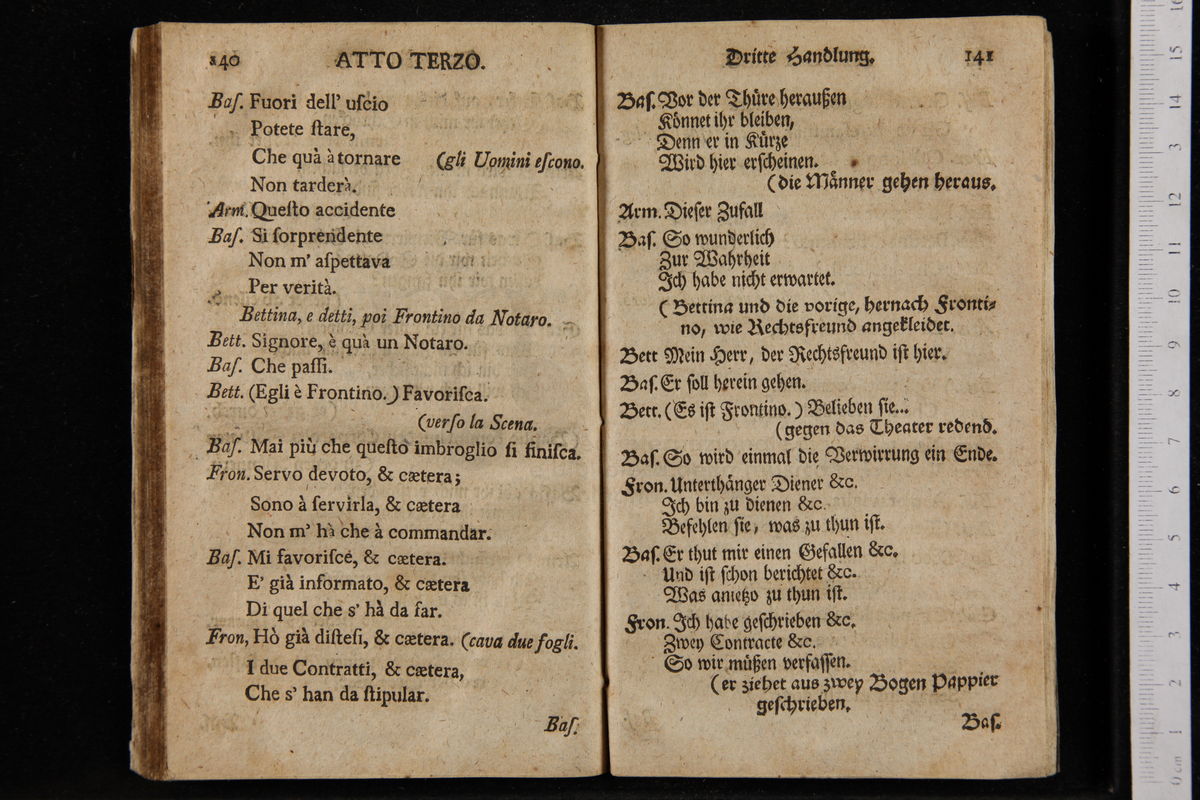 140 ATTO TERZO.
Baſ. Fuori dell' uſcio
Potete ſtare,
Che quà à tornare (gli Uomini eſcono.
Non tarderà.
Arm. Queſto accidente
Baſ. Si ſorprendente
Non m' aſpettava
Per verità.
Bettina, e detti, poi Frontino da Notaro.
Bett. Signore, è quà un Notaro.
Baſ. Che paſſi.
Bett. (Egli è Frontino.) Favoriſca.
(verſo la Scena.
Baſ. Mai più che queſto imbroglio ſi finiſca.
Fron. Servo devoto, & cætera;
Sono à ſervirla, & cætera
Non m' hà che à commandar.
Baſ. Mi favoriſce, & cætera.
E' già informato, & cætera
Di quel che s' hà da far.
Fron, Hò già diſteſi, & cætera. (cava due fogli.
I due Contratti, & cætera,
Che s' han da ſtipular.
Baſ.
Dritte Handlung. 141
Baſ. Vor der Thüre heraußen
Könnet ihr bleiben,
Denn er in Kürze
Wird hier erſcheinen.
(die Männer gehen heraus.
Arm. Dieſer Zufall
Baſ. So wunderlich
Zur Wahrheit
Ich habe nicht erwartet.
(Bettina und die vorige, hernach Fronti-
no, wie Rechtsfreund angekleidet.
Bett Mein Herr, der Rechtsfreund iſt hier.
Baſ. Er ſoll herein gehen.
Bett. (Es iſt Frontino.) Belieben ſie...
(gegen das Theater redend.
Baſ. So wird einmal die Verwirrung ein Ende.
Fron. Unterthänger Diener &c.
Ich bin zu dienen &c.
Befehlen ſie, was zu thun iſt.
Baſ. Er thut mir einen Gefallen &c.
Und iſt ſchon berichtet &c.
Was anietzo zu thun iſt.
Fron. Ich habe geſchrieben &c.
Zwey Contracte &c.
So wir müßen verfaſſen.
(er ziehet aus zwey Bogen Pappier
geſchrieben.
Baſ.
0 cm 1 2 3 4 5 6 7 8 9 10 11 12 13 14 15 16